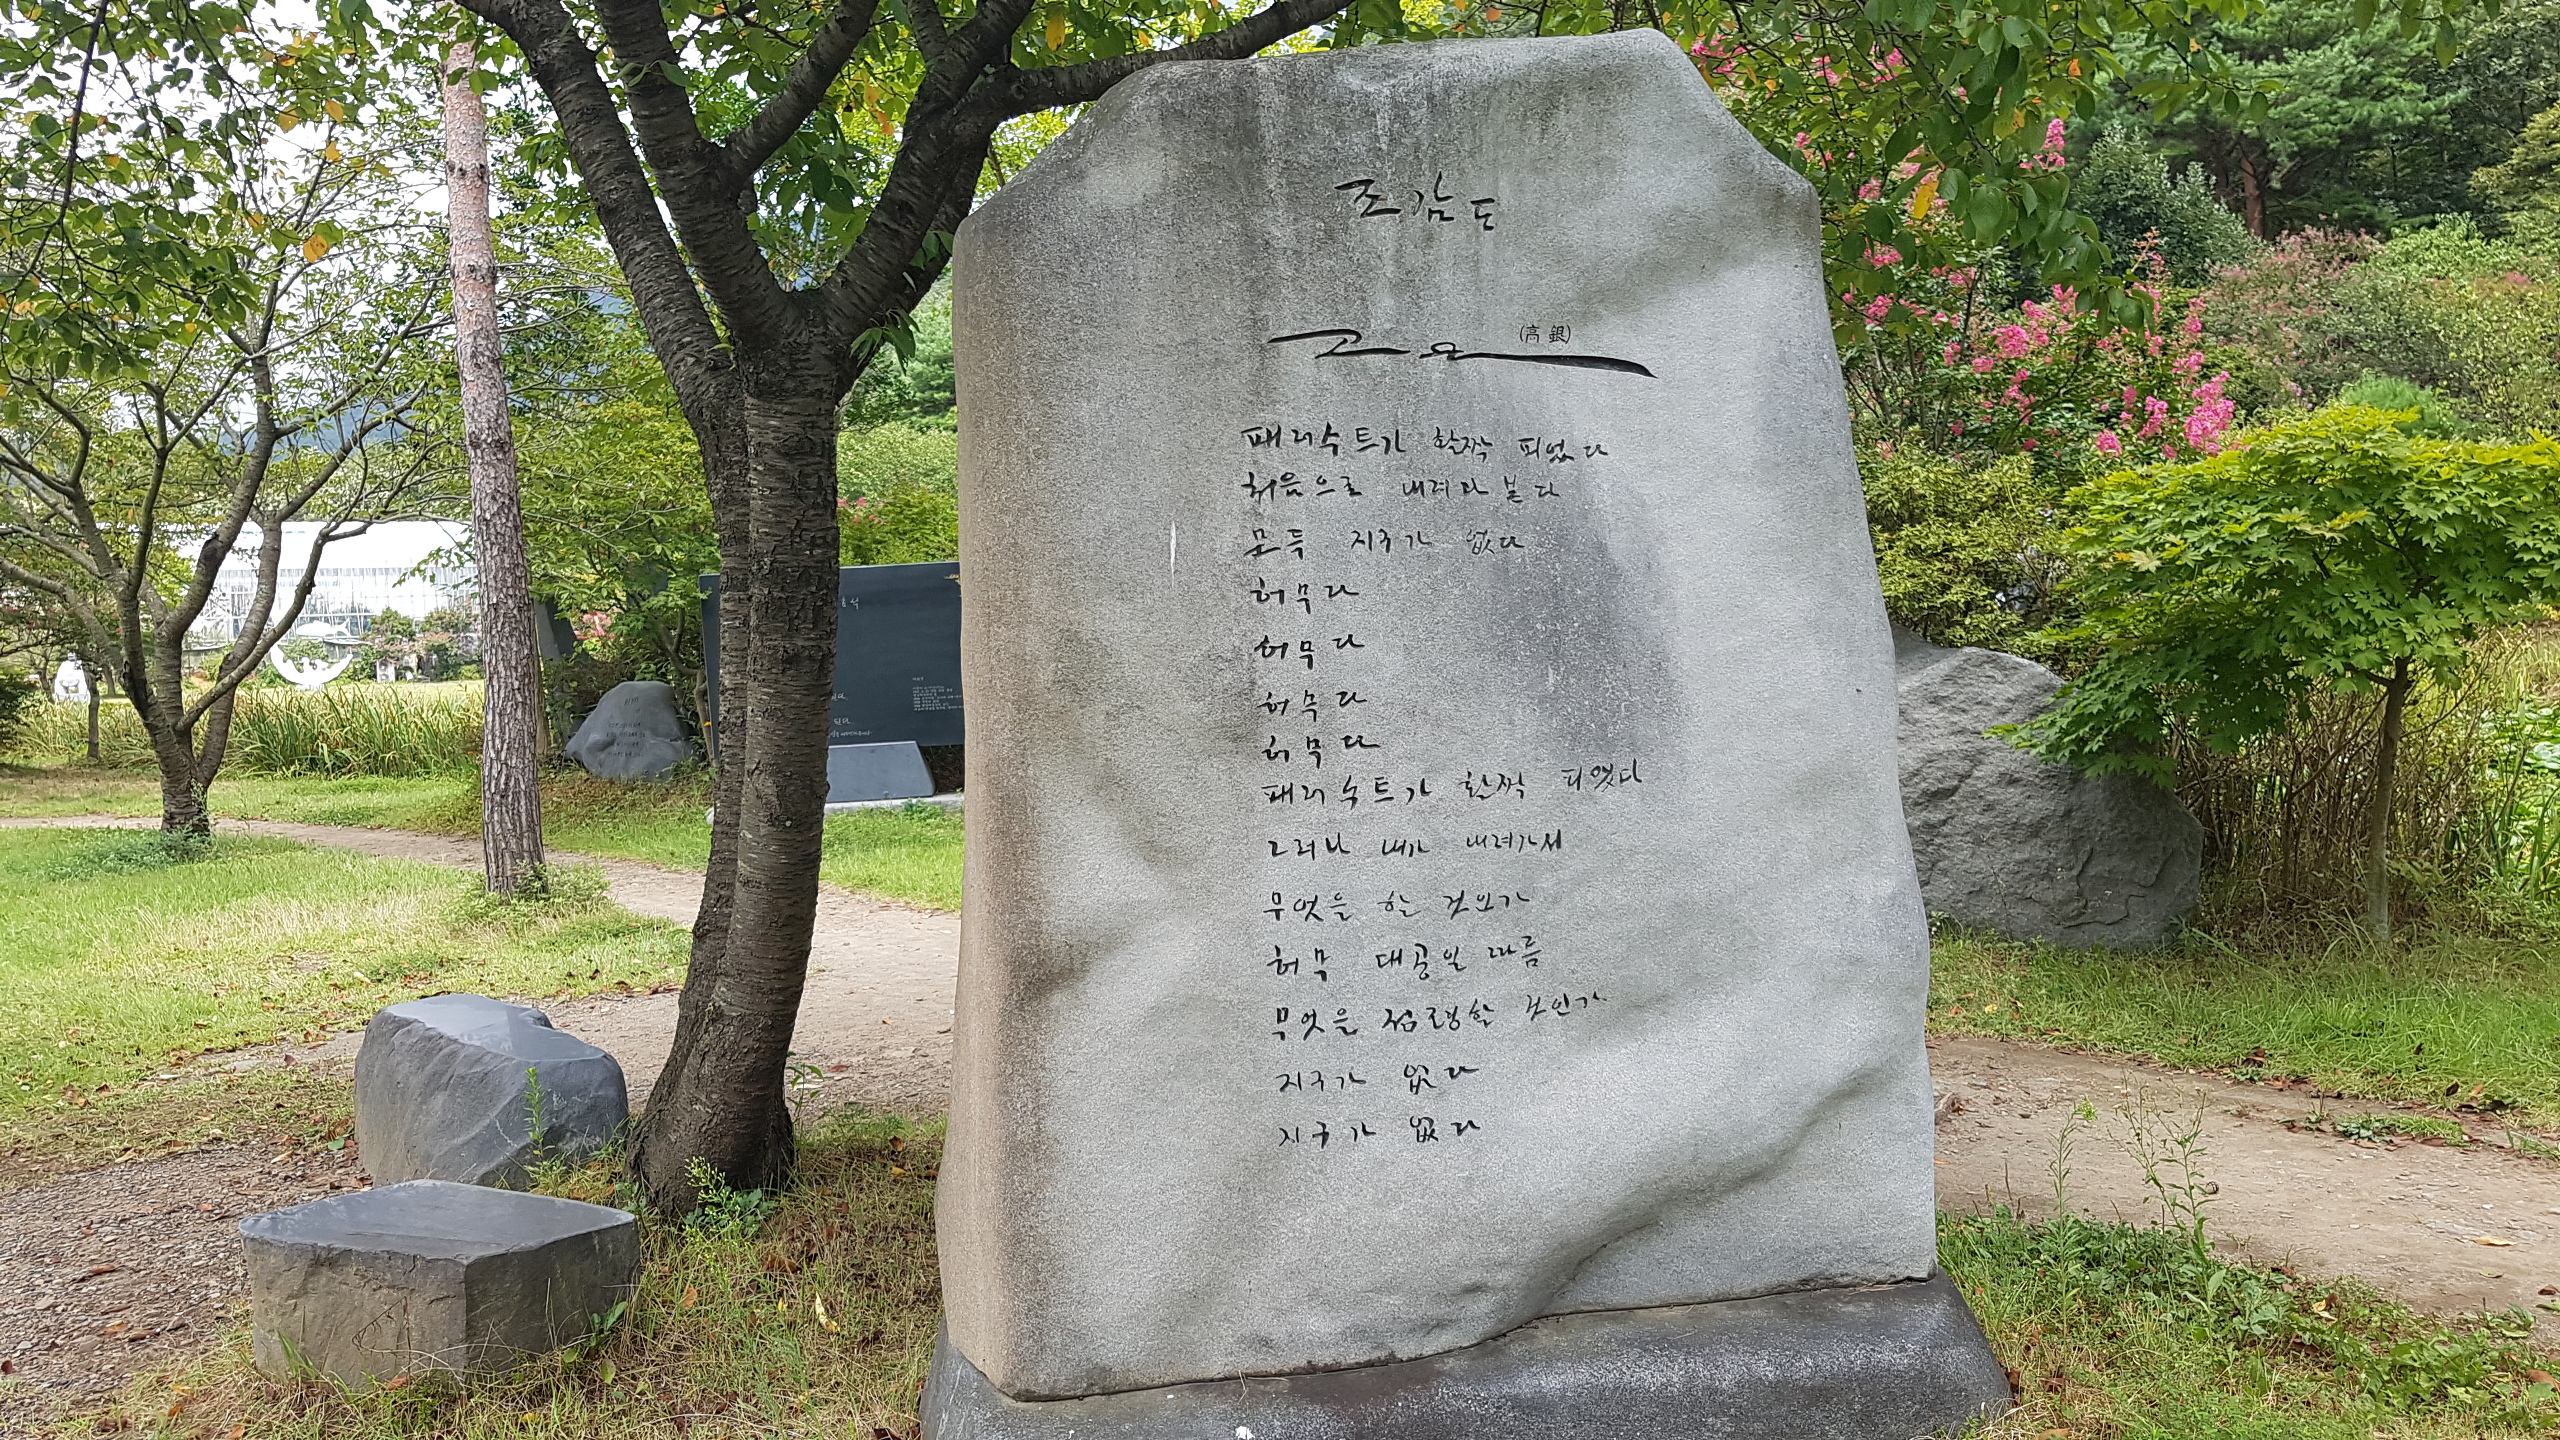 조감도
고은 (高銀)
패러슈트가 활짝 피었다
처음으로 내려다 본다
모두 지구가 없다
허무다
허무다
허무다
허무다
패러슈트가 활짝 피었다
그러나 내가 내려가서
무엇을 할 것인가
허무 대공일 따름
무엇을 점령할 것인가
지구가 없다
지구가 없다